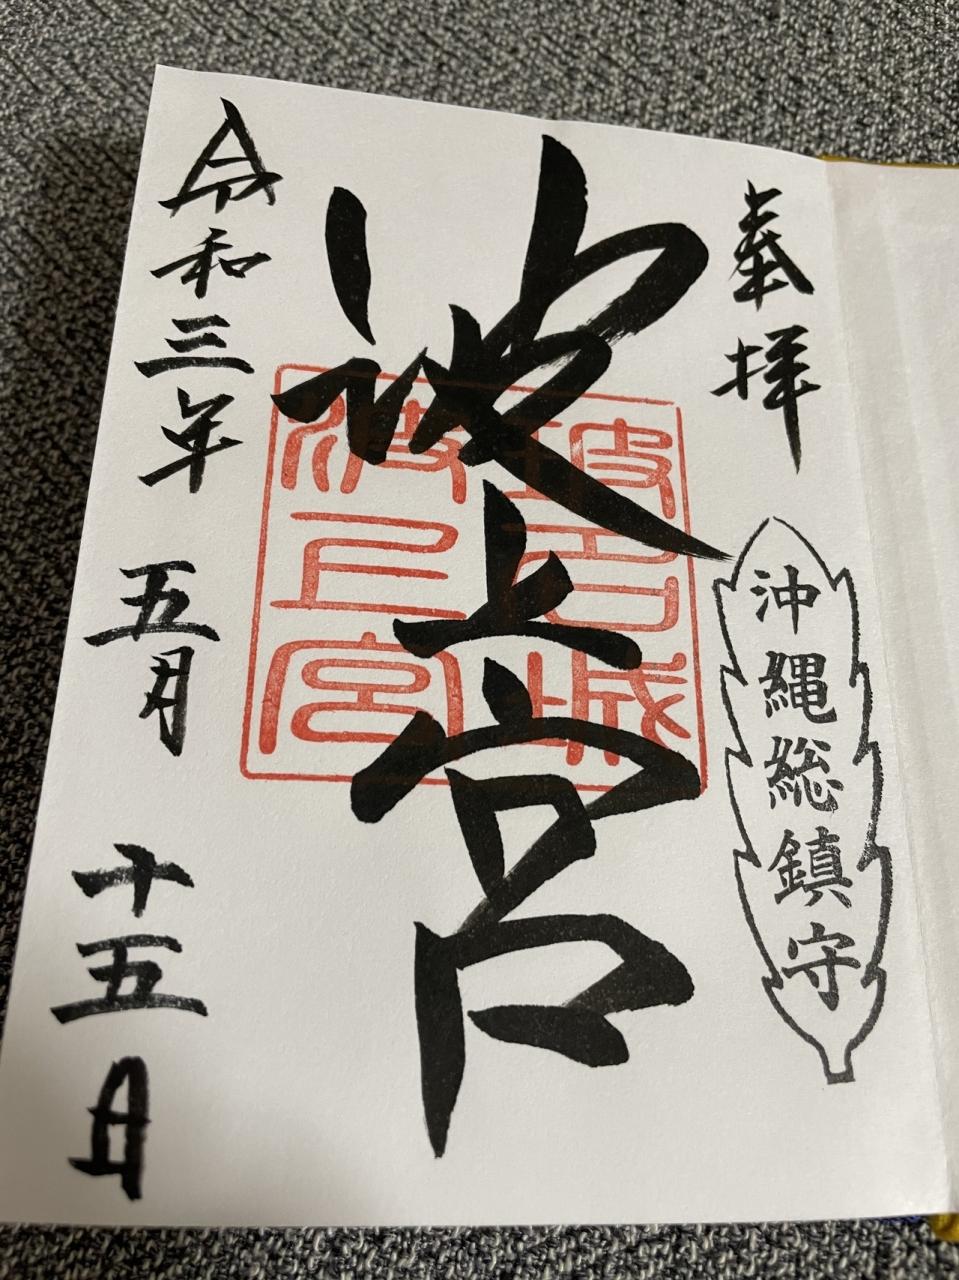 奉拝
沖縄総鎮守
波上宮
玻名城
波上宮
令和三年 五月 十五日